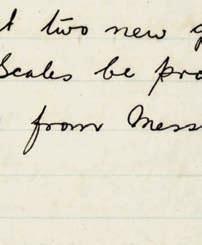 two new
Scales be pro
from Mess